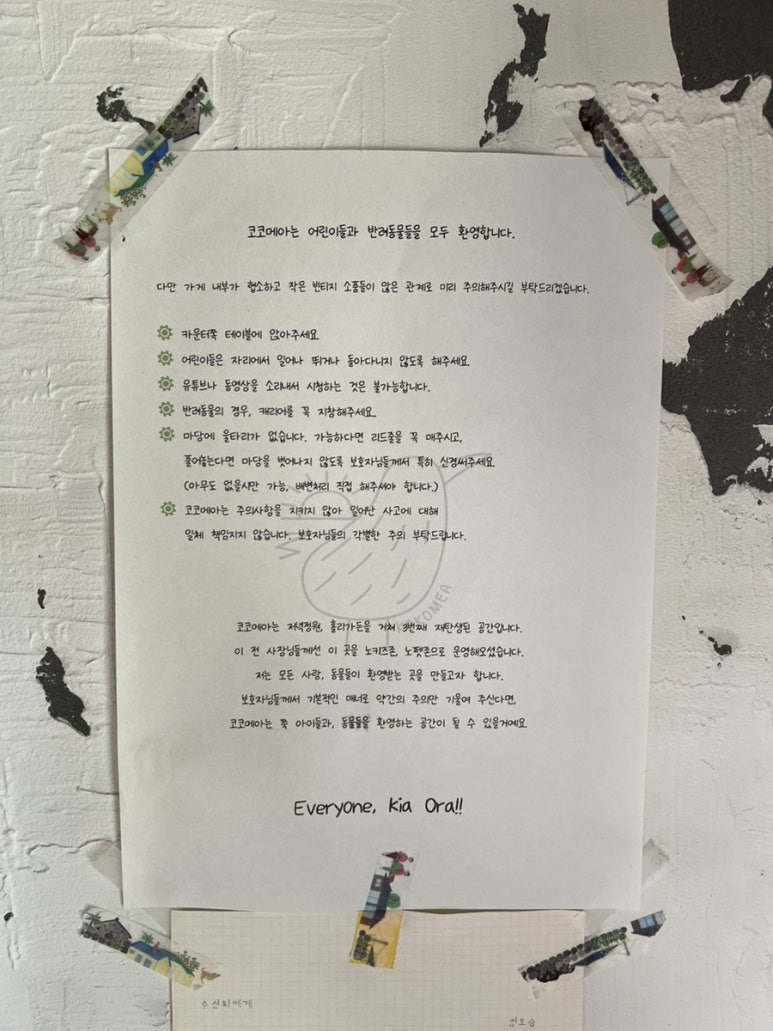 코코메아는 어린이들과 반려동물들을 모두 환영합니다.
다만 가게 내부가 협소하고 작은 빈티지 소품들이 많은 관계로 미리 주의해주시길 부탁드리겠습니다.
카운터쪽 테이블에 앉아주세요.
어린이들은 자리에서 일어나 뛰거나 돌아다니지 않도록 해주세요.
유튜브나 동영상을 소리내서 시청하는 것은 불가능합니다.
반려동물의 경우, 캐리어를 꼭 지참해주세요.
마당에 울타리가 없습니다. 가능하다면 리드줄을 꼭 매주시고,
풀어놓는다면 마당을 벗어나지 않도록 보호자님들께서 특히 신경써주세요.
(아무도 없을시만 가능, 배변처리 직접 해주셔야 합니다.)
코코메아는 주의사항을 지키지 않아 일어난 사고에 대해
일체 책임지지 않습니다. 보호자님들의 각별한 주의 부탁드립니다.
KOKOMEA
코코메아는 저녁정원, 홀리가든을 거쳐 3번째 재탄생된 공간입니다.
이 전 사장님들께선 이 곳을 노키즈존, 노펫존으로 운영해오셨습니다.
저는 모든 사람, 동물들이 환영받는 곳을 만들고자 합니다.
보호자님들께서 기본적인 매너로 약간의 주의만 기울여 주신다면,
코코메아는 쭉 아이들과, 동물들을 환영하는 공간이 될 수 있을거예요.
Everyone, Kia Ora!!
수선화에게
정호승